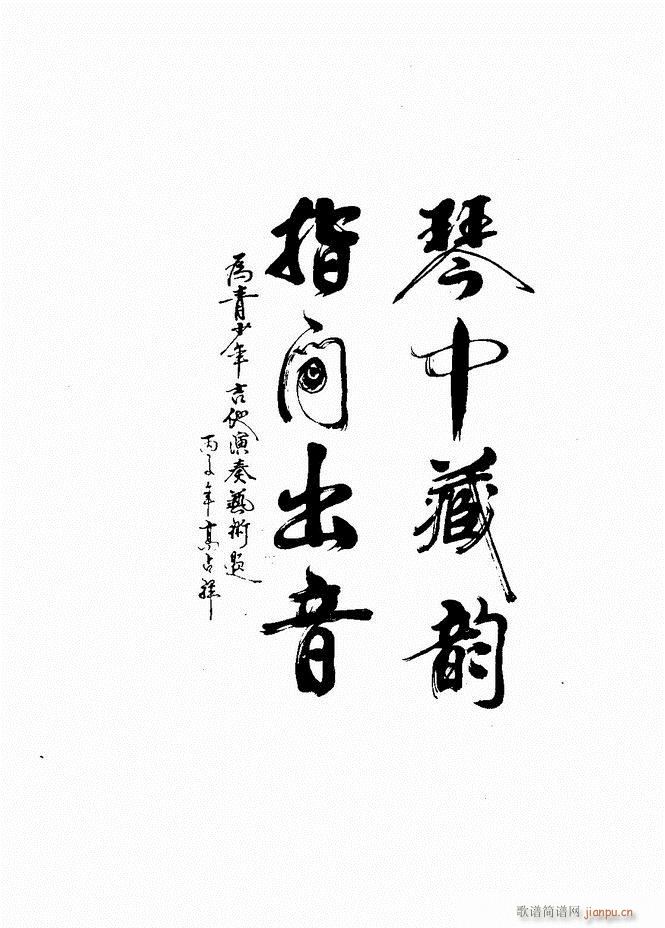 琴中藏韵
指间出音
为青少年吉他演奏藝術题
丙子年高占祥
歌谱简谱网 jianpu.cn